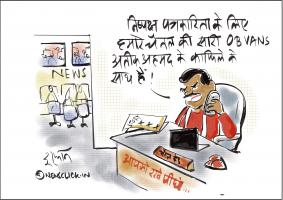 निष्पक्ष पत्रकारिता के लिए
हमारे चैनल की सारी OB VANS
अतीक अहमद के काफिले के
साथ हैं!
NEWS
आपको रखे पीछे...
इरफ़ान
NEWSCLICK.IN